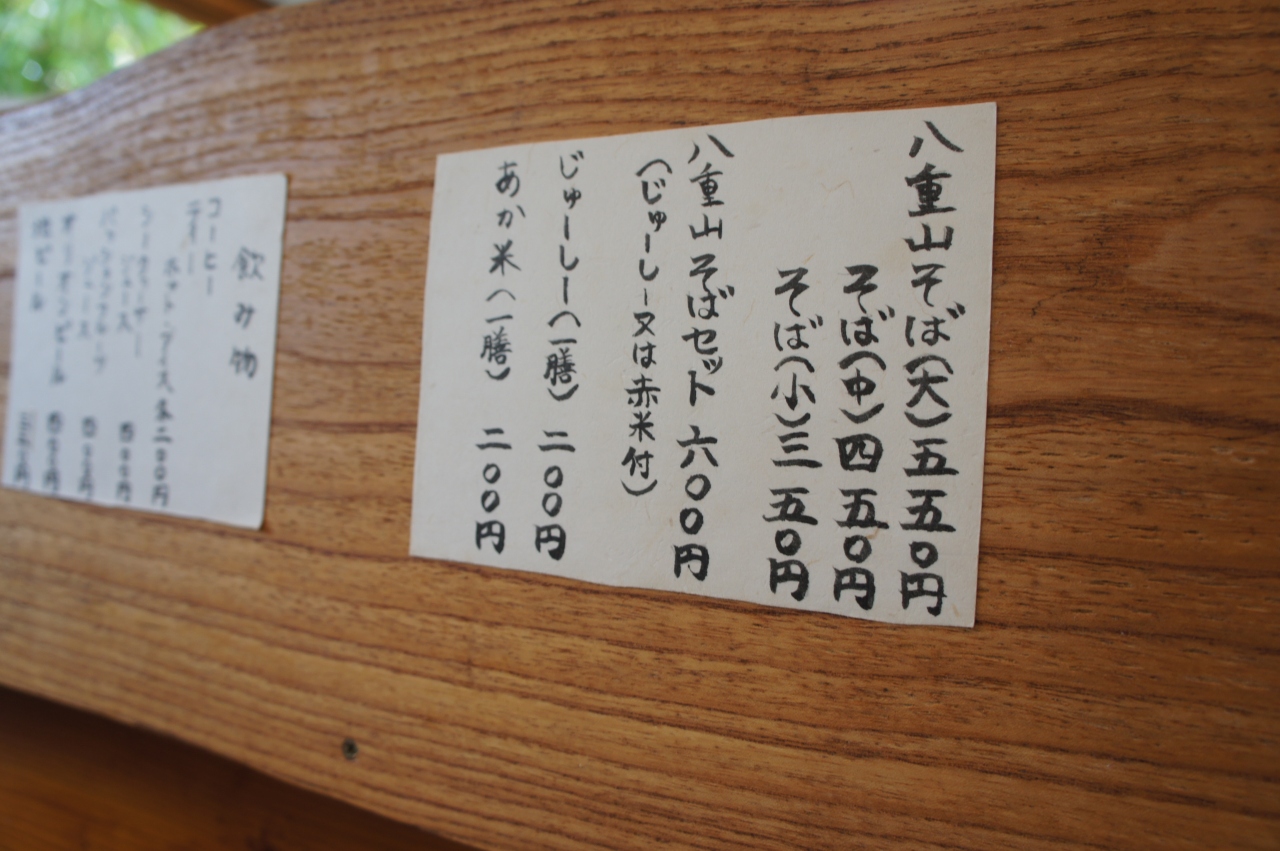 八重山そば(大)五五〇円
そば(中)四五〇円
そば(小)三五〇円
八重山そばセット 六〇〇円
(じゅーしー又は赤米付)
じゅーしー(一膳) 二〇〇円
あか米(一膳) 二〇〇円
飲み物
コーヒー
ティー
ホット・アイス各二〇〇円
シークヮーサー
ジュース
パッションフルーツ
ジュース
オリオンビール
地ビール